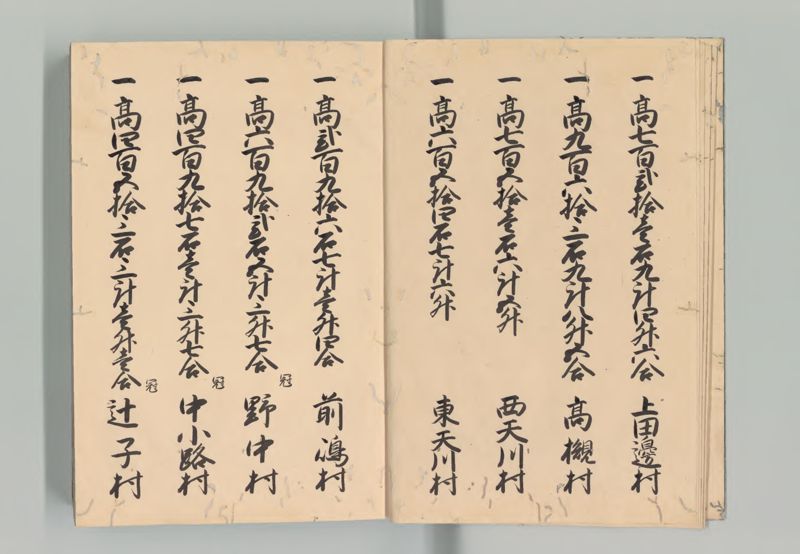 一高七百弐拾壱石九斗四升六合 上田邊村
一高九百六拾三石九斗八升五合 高槻村
一高七百五拾壱石六斗五升 西天川村
一高六百五拾四石七斗六升 東天川村
一高弐百九拾六石七斗壱升四合 前嶋村
一高六百九拾弐石五斗三升七合 冠 野中村
一高四百九拾七石壱斗三升七合 冠 中小路村
一高四百五拾三石三斗壱升壱合 冠 辻子村